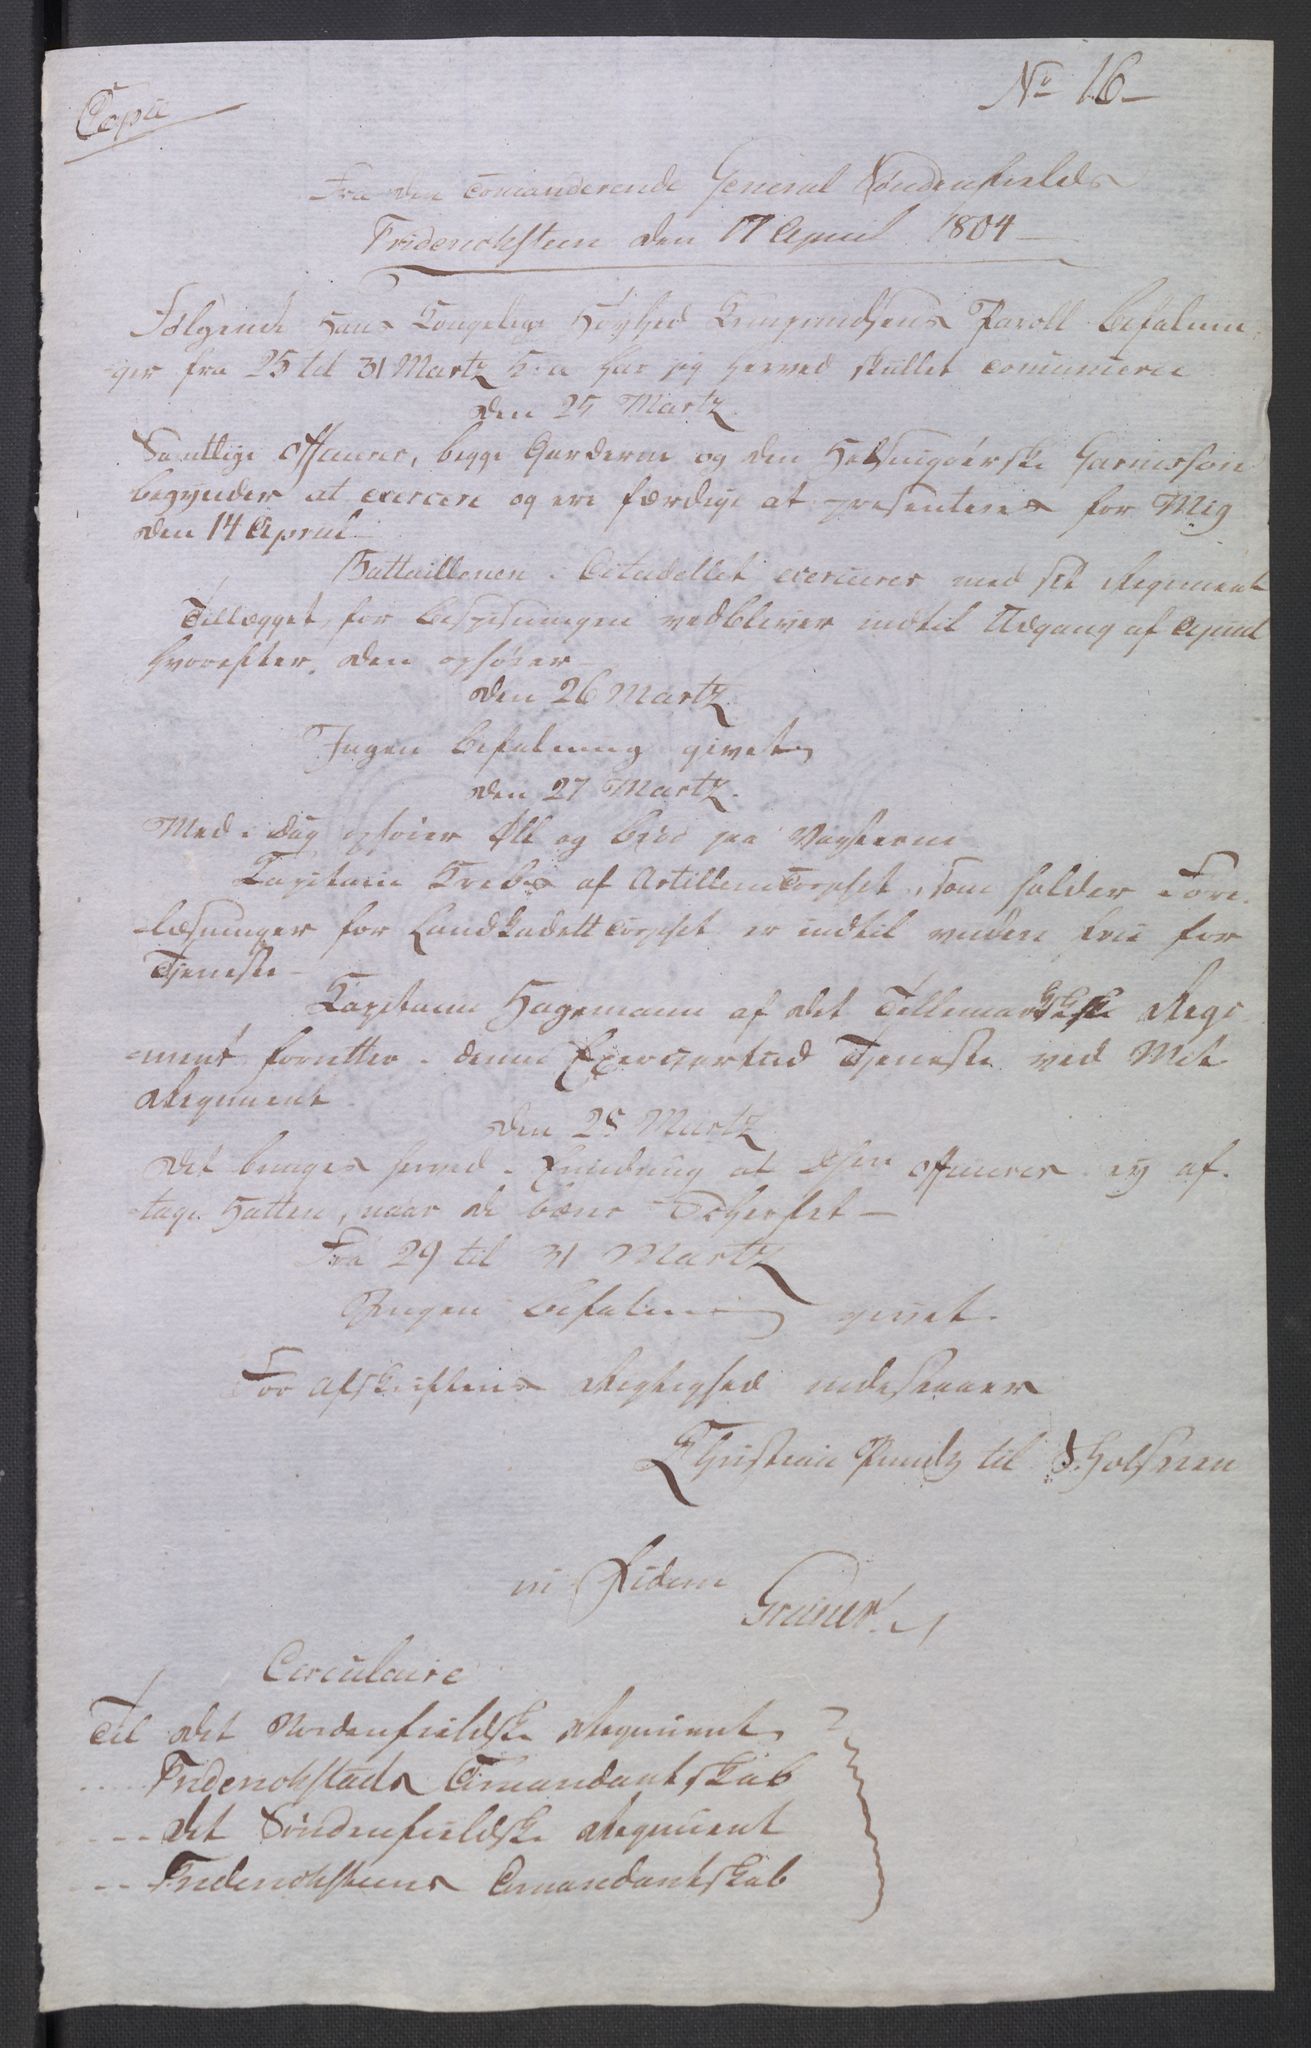 No 16
Copie
Fra den comanderende General Søndenfields
Friderichsteen den 17 April 1804
Følgende Hans Kongelige Høyhed Kronprindsens Paroll Befalin-
ger fra 25 til 31 Martz h: a har jeg herved skullet comunicere
den 25 Martz.
Samtlige Officerer, begge Garderne og den Helsingøerske Garnisson
begynder at exercere og ere færdige at presenteres for Mig
den 14 April
Battaillonen i Citadellet exercerer med sit Regiment
Tillægget for Bespisningen vedbliver indtil Udgang af April
hvorefter den ophører
den 26 Martz.
Ingen Befalning givet
den 27 Martz.
Med i Dag ophører Øll og Brød paa Vagterne
Capitain Krebs af Artillerie Corpset, som holder Fore-
-læsninger for Landkadett Corpset er indtil viidere frie for
Tjeneste
Capitain Hagemann af det Tellemarkske Regi-
-ment forretter i denne Exerceertiid Tjeneste ved Mit
Regiment
den 28 Martz
Det bringes herved i Erindring at Officerer ey af-
-tage Hatten, naar de bære Scherfet
Fra 29 til 31 Martz
Ingen Befalning givet.
For Afskriftens Rigtighed indestaaer
Christian Prindz til S. Holsteen
in Fidem
Grüner
Circulaire
Til det Nordenfieldske Regiment
Friderichstads Comandantskab
det Søndenfieldske Regiment
Friderichsteens Comandantskab